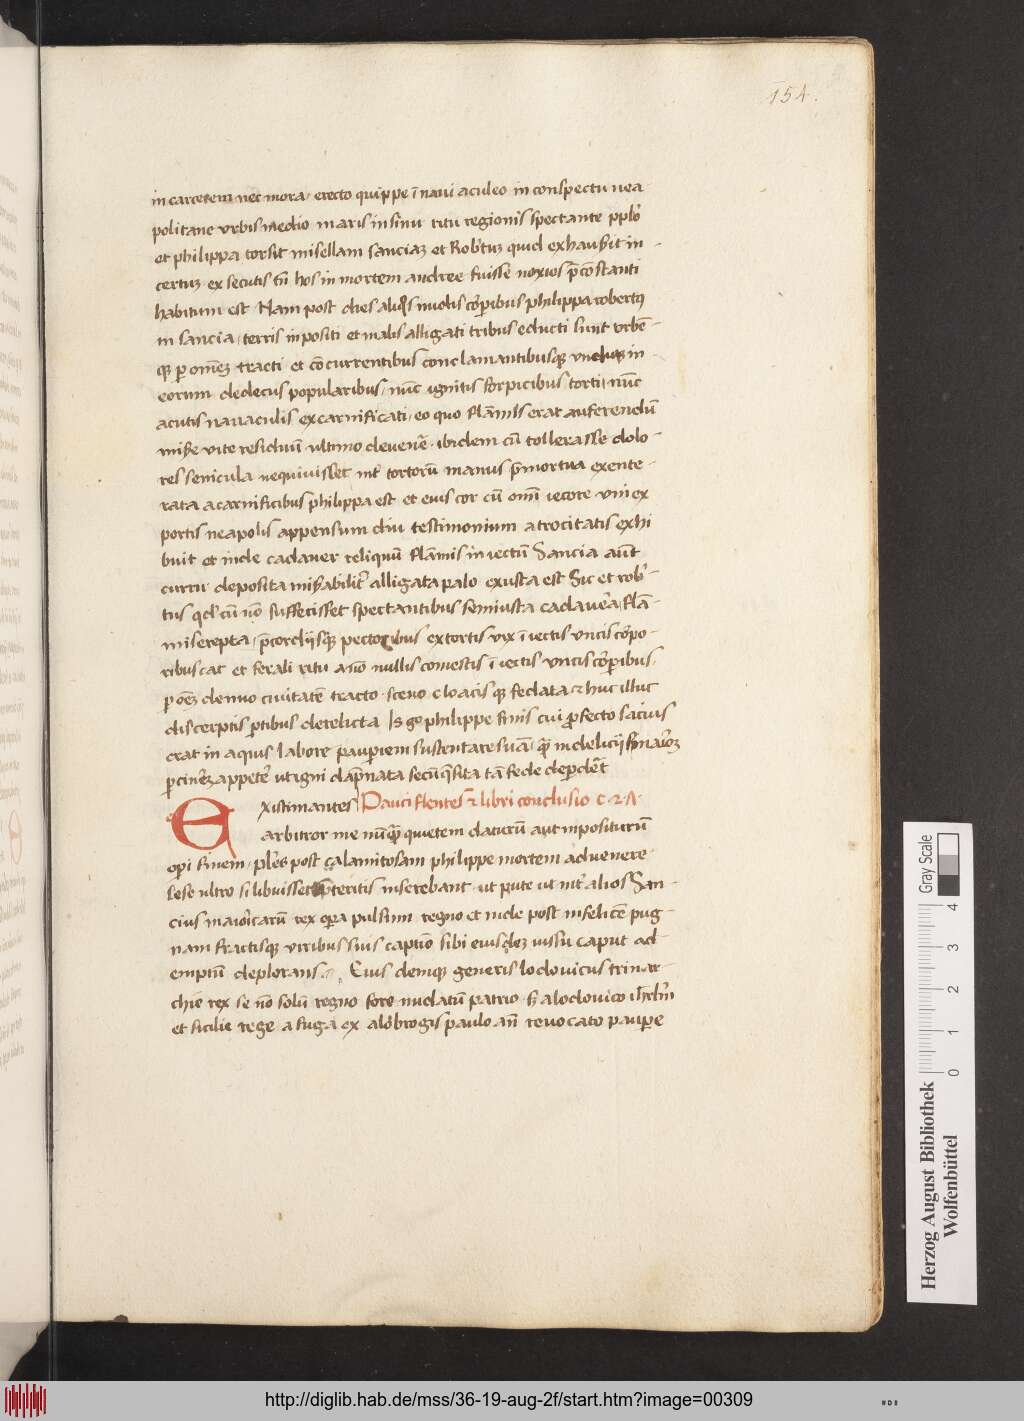 154.
in carcerem nec mora, erecto quippe ī navi aculeo in conspectu nea
politane urbis medio maris in sinu ritu regionis spectante pplo
et philippa torsit misellam sanciaʒ et Rob'tuʒ quid exhausit in-
certuʒ ex secutis tn̄ hos in mortem andree fuisse noxios p̄constanti
habitum est Nam post dies aliq's nudis corꝑibus philippa robertꝰ
in sancia, terris inpositi et malis alligati tribus educti sunt urbē-
qꝫ ꝑ omēʒ tracti et cōcurrentibus conclamantibusqꝫ in
eorum dedecus popularibus, nūc ignitis forpicibus torti, nūc
acutis navaculis excarnificati, eo quo flāmis erat auferendū
mis'e vite residuū ultimo devenē ibidem cū tollerasse dolo-
res senicula nequivisset int' tortorū manus p̄mortua exente-
rata a carnificibus philippa est et eius cor cū omī iecore uni ex
portis neapolis appensum diu testimonium atrocitatis exhi
buit et inde cadaver reliquū flāmis iniectū Sancia aūt
curru deposita mis'abilit' alligata palo exusta est Sic et rob'-
tus qd' cū nō suffecisset spectantibus semiusta cadavera flā-
mis erepta, p̄cordijsqꝫ pectoribus extortis vix ī iectis uncis corꝑo-
ribus cat et ferali ritu a nōnullis comestis ī iectis uncis corꝑibus,
ꝑ oēʒ denuo civitatē tracto sceno cloacisqꝫ fedata ⁊ huc illuc
discerptis ꝑtibus derelicta Is go philippe finis cui ꝓfecto sacius
erat in aquis labore pauꝑiem sustentare suā, qꝫ in delicijs
appeter' ut igni dāpnata secū q̄sita tā fede deꝑdēt
Existimantes Pauci flentes ⁊ libri conclusio C. 2. A.
arbitror me nūqꝫ quietem daturū aut inpositurū
opi finem, plēs post calamitosam philippe mortem advenere
lese ultro si libuisset p̄teritis inserebant, ut pute ut int' alios San-
cius maioricarū rex oꝑa pulsum regno et inde post infelicē pug-
nam fractisqꝫ viribus suis captivo sibi eiusdeʒ iussu caput ad-
emptū deplorans. Eius demqꝫ generis lodovicus trinar-
chie rex se nō solū regno fore nudatū patrio, s' a lodovico ihrl'm
et sicilie rege a fuga ex alobrogis paulo an̄ revocato pauꝑe
Herzog August Bibliothek
Wolfenbüttel
Gray Scale
0 1 2 3 4
http://diglib.hab.de/mss/36-19-aug-2f/start.htm?image=00309